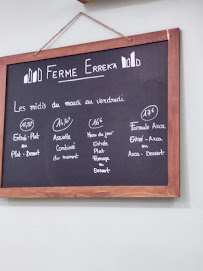 FERME ERREKA
Les midis du mardi au vendredi
Entrée-Plat
ou
Plat-Dessert
Assiette
Combiné
du moment
16€
Menu du jour
Entrée
Plat
Fromage
ou
Dessert
17€
Formule Axoa
Entrée-Axoa
ou
Axoa-Dessert